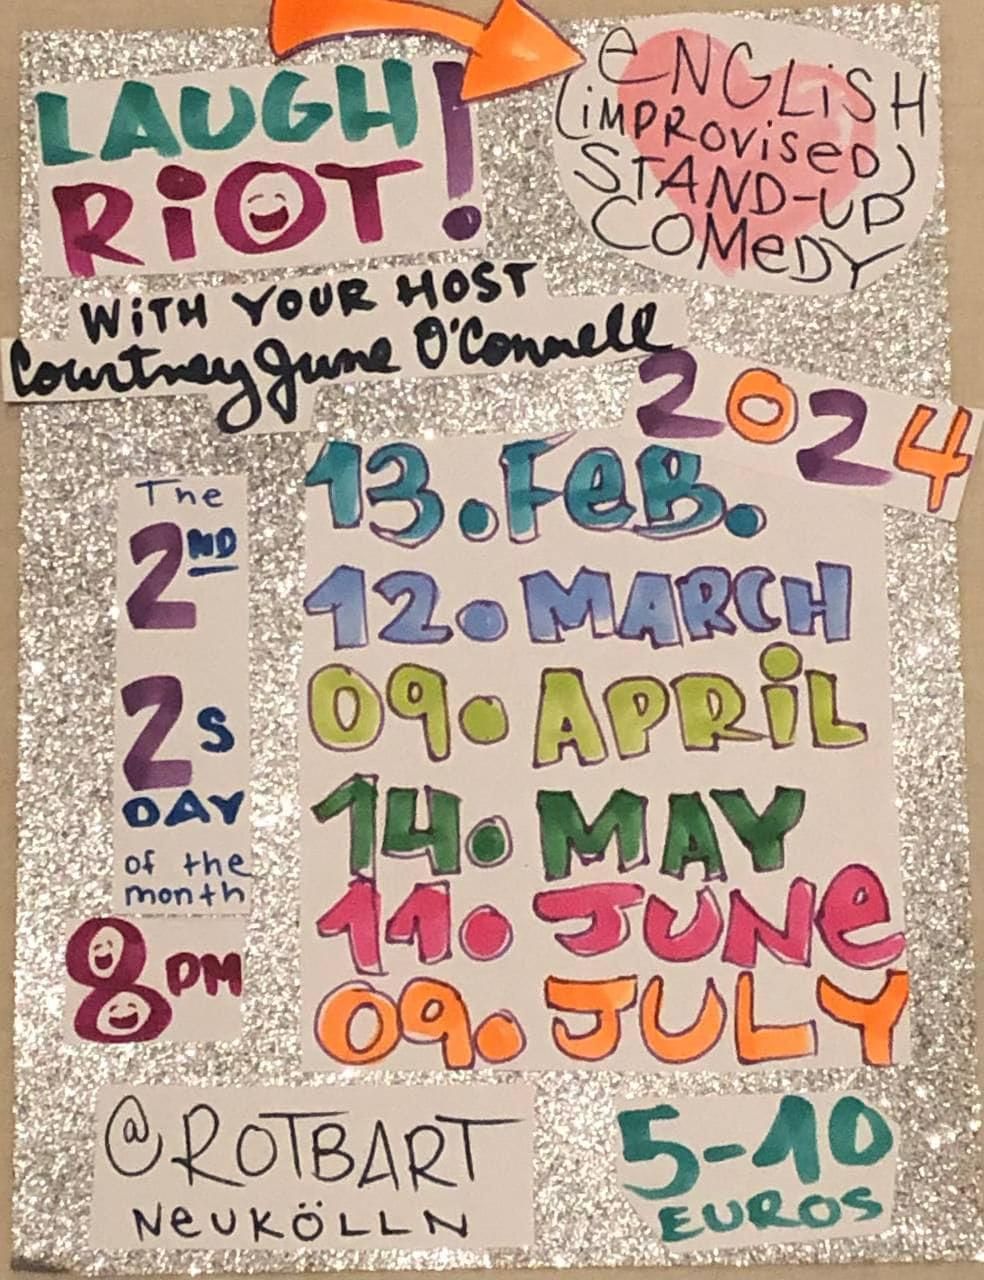 LAUGH
RiOT!
eNGLiSH
(iMPROViSeD)
STAND-UP
COMeDY
WiTH YOUR HOST
Courtney June O'Connell
2024
The
2ND
2s
DAY
of the
month
8PM
13. FeB.
12. MARCH
09. APRiL
14. MAY
11. JUNe
09. JULY
@ROTBART
NeUKÖLLN
5-10
EUROS